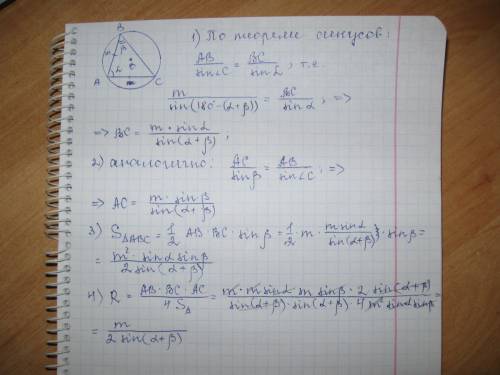 B
β
α
A
m
C
1) По теореме синусов:
AB/sin∠C = BC/sinα, т.е.
m/sin(180°-(α+β)) = BC/sinα, =>
=> BC = m·sinα/sin(α+β);
2) аналогично: AC/sinβ = AB/sin∠C, =>
=> AC = m·sinβ/sin(α+β)
3) S△ABC = 1/2 AB·BC·sinβ = 1/2·m·m sinα/sin(α+β)·sinβ =
= m²·sinα sinβ/2sin(α+β)
4) R = AB·BC·AC/4S△ = m·m sinα·m sinβ·2 sin(α+β)/sin(α+β)·sin(α+β)·4 m² sinα sinβ =
= m/2 sin(α+β)